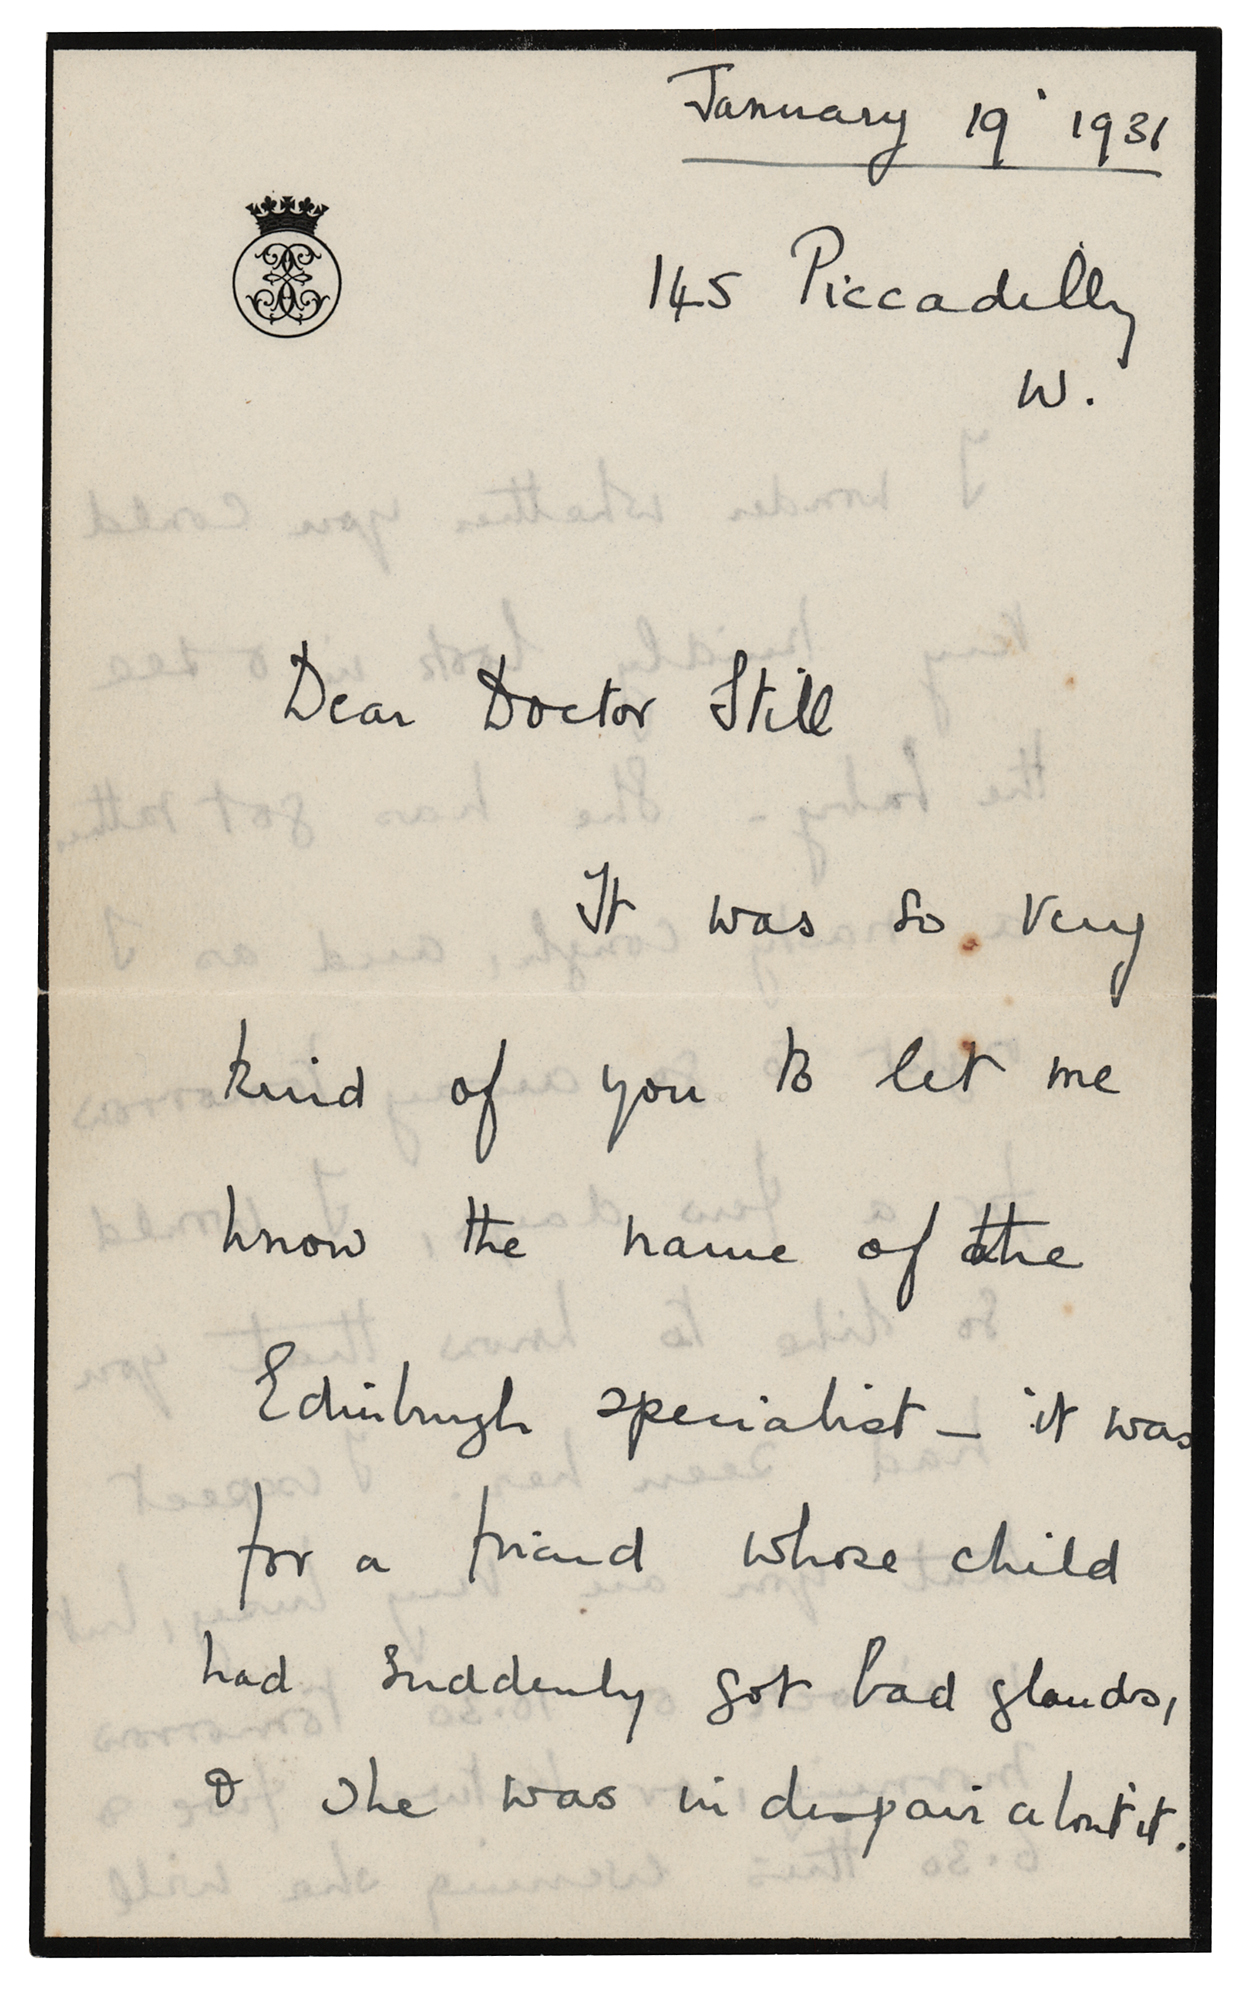 January 19 1931
145 Piccadilly
W.
Dear Doctor Still
It was so very
kind of you to let me
know the name of the
Edinburgh specialist – it was
for a friend whose child
had suddenly got bad glands,
& she was in despair about it.